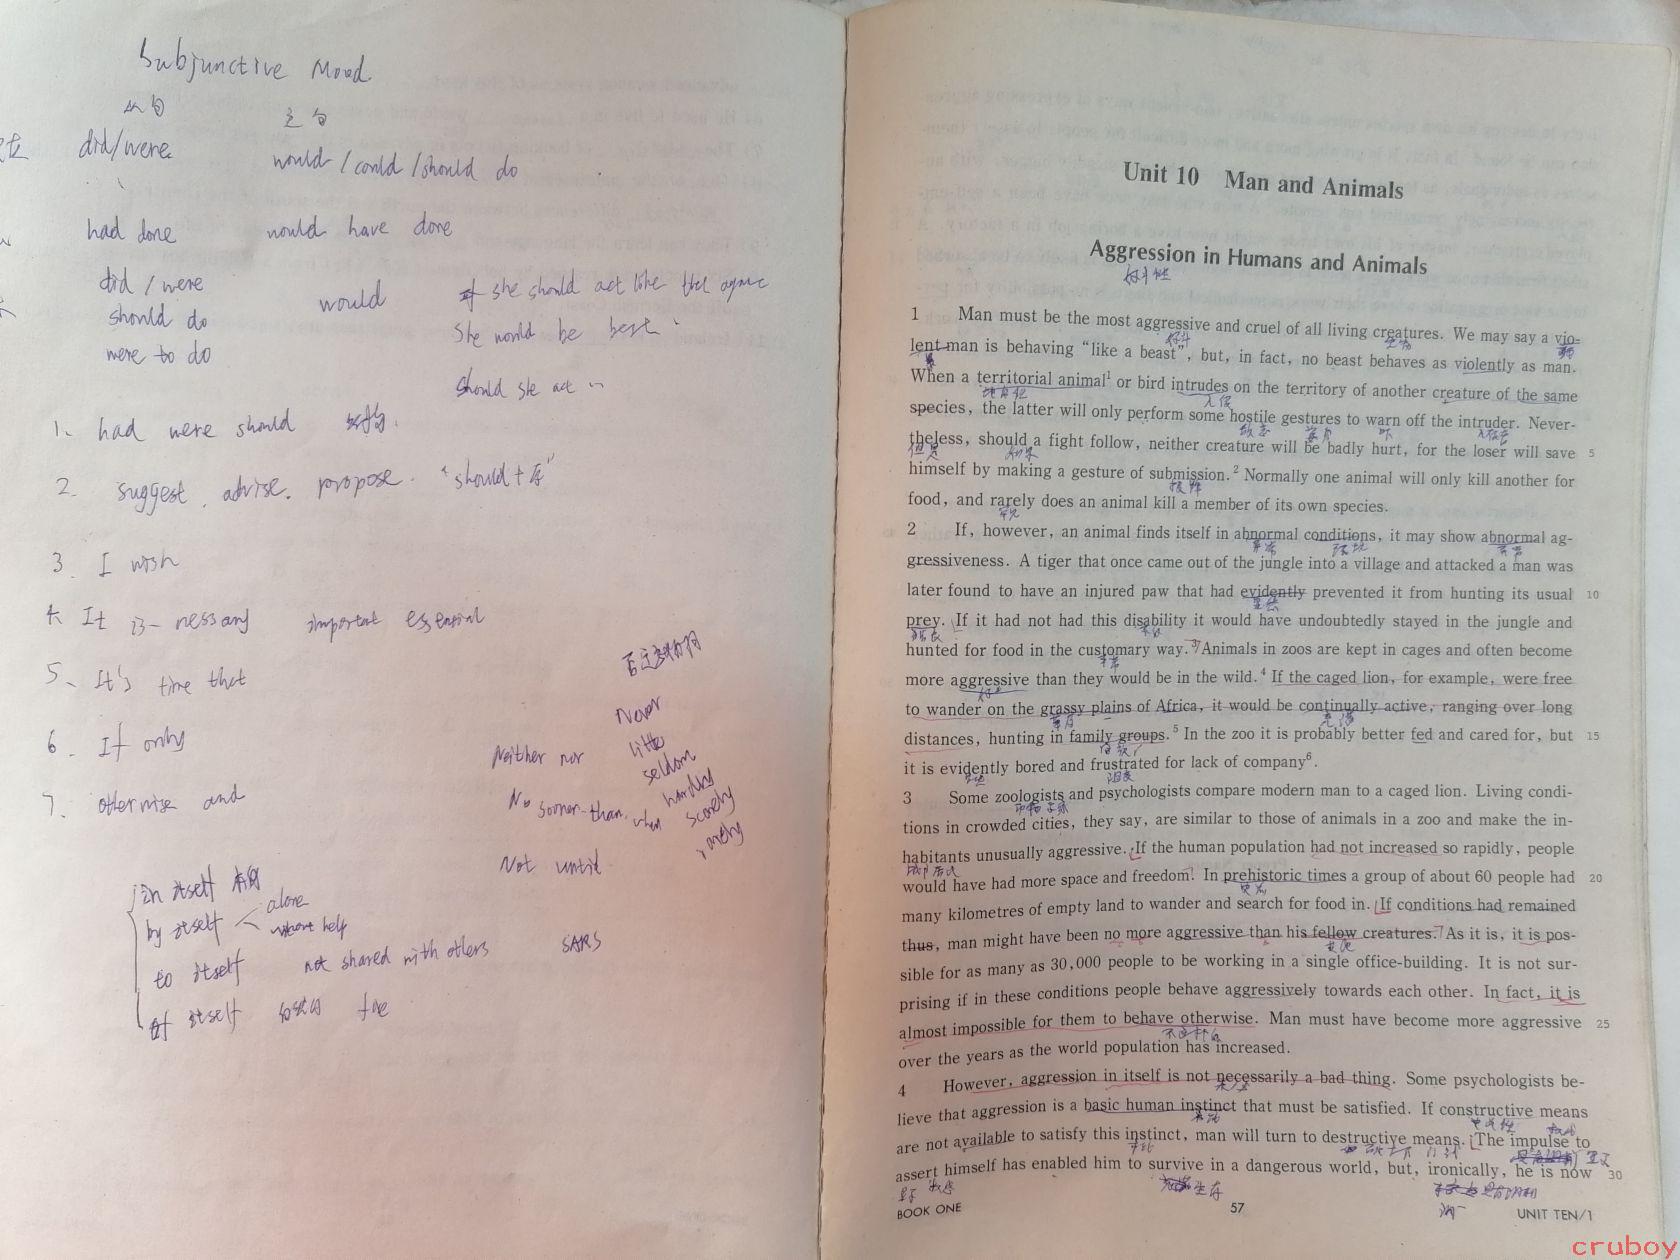 Subjunctive Mood
从句 主句
did/were would/could/should do
had done would have done
did/were
should do would If she should act like that again
were to do She would be best
Should she act
1. had were should
2. suggest, advise, propose. "should+原"
3. I wish
4. It is nessary important essential
5. It's time that
6. If only
7. otherwise and
Never
Neither nor little
seldom
No sooner-than, when hardly
scarcely
rarely
Not until
in itself 本身
by itself < alone
without help
to itself not shared with others SARS
of itself fire
Unit 10 Man and Animals
Aggression in Humans and Animals
好斗性
1 Man must be the most aggressive and cruel of all living creatures. We may say a vio-
好斗 生物
lent man is behaving "like a beast", but, in fact, no beast behaves as violently as man.
When a territorial animal1 or bird intrudes on the territory of another creature of the same
入侵
species, the latter will only perform some hostile gestures to warn off the intruder. Never-
敌意 入侵者
theless, should a fight follow, neither creature will be badly hurt, for the loser will save 5
但是 如果
himself by making a gesture of submission.2 Normally one animal will only kill another for
投降
food, and rarely does an animal kill a member of its own species.
罕见
2 If, however, an animal finds itself in abnormal conditions, it may show abnormal ag-
异常 环境 异常
gressiveness. A tiger that once came out of the jungle into a village and attacked a man was
later found to have an injured paw that had evidently prevented it from hunting its usual 10
显然
prey. If it had not had this disability it would have undoubtedly stayed in the jungle and
hunted for food in the customary way.3 Animals in zoos are kept in cages and often become
more aggressive than they would be in the wild.4 If the caged lion, for example, were free
to wander on the grassy plains of Africa, it would be continually active, ranging over long
distances, hunting in family groups.5 In the zoo it is probably better fed and cared for, but 15
it is evidently bored and frustrated for lack of company6.
3 Some zoologists and psychologists compare modern man to a caged lion. Living condi-
tions in crowded cities, they say, are similar to those of animals in a zoo and make the in-
habitants unusually aggressive. If the human population had not increased so rapidly, people
would have had more space and freedom. In prehistoric times a group of about 60 people had 20
many kilometres of empty land to wander and search for food in. If conditions had remained
thus, man might have been no more aggressive than his fellow creatures. As it is, it is pos-
sible for as many as 30,000 people to be working in a single office-building. It is not sur-
prising if in these conditions people behave aggressively towards each other. In fact, it is
almost impossible for them to behave otherwise. Man must have become more aggressive 25
over the years as the world population has increased.
4 However, aggression in itself is not necessarily a bad thing. Some psychologists be-
lieve that aggression is a basic human instinct that must be satisfied. If constructive means
本能
are not available to satisfy this instinct, man will turn to destructive means. The impulse to
assert himself has enabled him to survive in a dangerous world, but, ironically, he is now 30
生存
BOOK ONE 57 UNIT TEN/1
cruboy